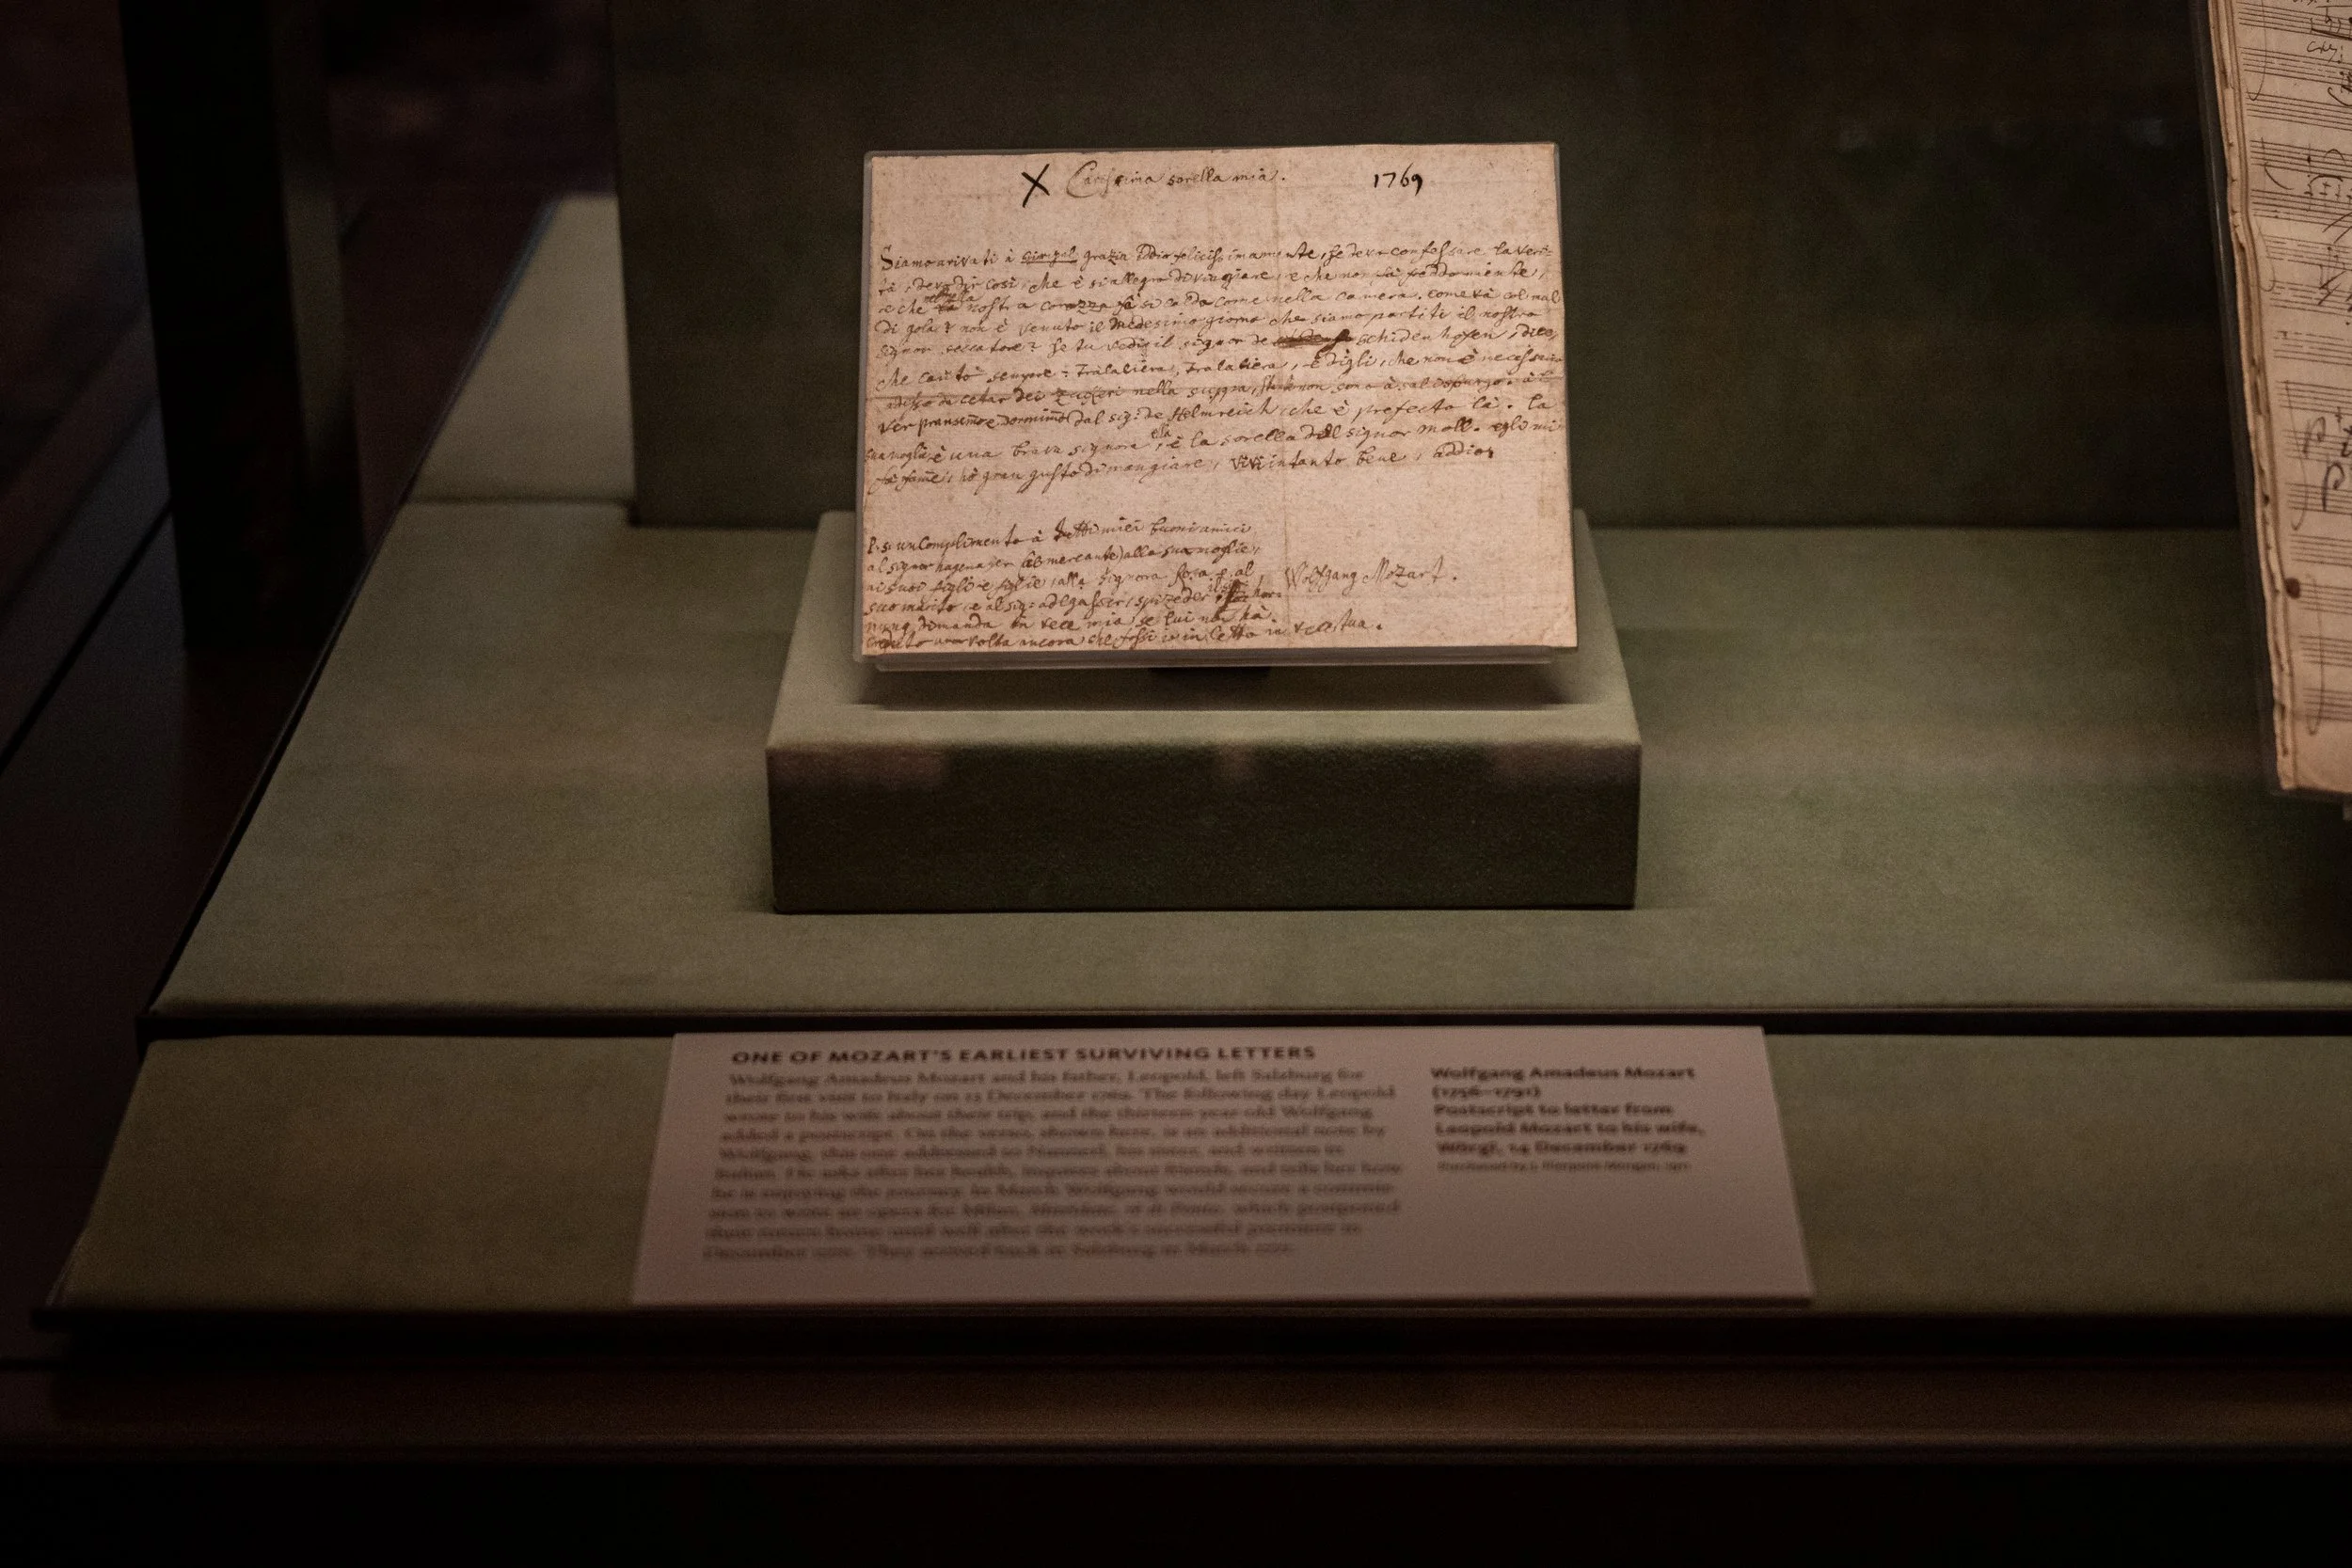 X Carissima sorella mia. 1769
Siamo arivati à Wirgel grazia Iddio felicissimamente, se devo confessare la veri-
tà, devo dir così, che è si allegro di viaggiare, e che non fà freddo niente,
e che nella nostra carozza fà si caldo come nella camera. come và col mal
di gola? non è venuto il medesimo giorno che siamo partiti il nostro
signor seccatore? se tu vedi il signor de schidenhofen, dice,
che canto sempre: Tralaliera, Tralaliera, e digli, che non è necessario
adesso di nella suppa, non sono à salisburgo. à
dal sig: de Helmreich che è prefecto là. la
sua moglie è una brava signora ella, è la sorella del signor moll. egli mi
fà fame, hò gran gusto di mangiare, vivi intanto bene, addio,
P.S: un Complimento à tutti miei buoni amici
al signor hagenauer (il mercante) alla sua moglie,
ai suoi figli e figlie, alla signora Rosa e al
suo marito, e al sig: adlgasser, spizeder
domanda in vece mia, se lui non hà
creduto una volta ancora che fossi io in letto in vece tua.
Wolfgang Mozart.
ONE OF MOZART'S EARLIEST SURVIVING LETTERS
Wolfgang Amadeus Mozart and his father, Leopold, left Salzburg for
their first visit to Italy on 13 December 1769. The following day Leopold
wrote to his wife about their trip, and the thirteen-year-old Wolfgang
added a postscript. On the verso, shown here, is an additional note by
Wolfgang, this one addressed to Nannerl, his sister, and written in
Italian. He asks after her health, inquires about friends, and tells her how
he is enjoying the journey. In March Wolfgang would secure a commis-
sion to write an opera for Milan, Mitridate, re di Ponto, which postponed
their return home until well after the work's successful premiere in
December 1770. They arrived back in Salzburg in March 1771.
Wolfgang Amadeus Mozart
(1756–1791)
Postscript to letter from
Leopold Mozart to his wife,
Wörgl, 14 December 1769
Purchased by J. Pierpont Morgan